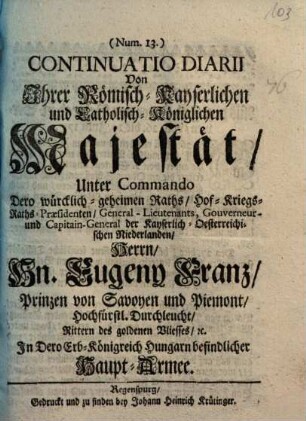 103
(Num. 13.)
CONTINUATIO DIARII
Von
Ihrer Römisch-Kayserlichen
und Catholisch-Königlichen
Majestät/
Unter Commando
Dero würcklich-geheimen Raths/ Hof-Kriegs-
Raths-Præsidenten/ General-Lieutenants, Gouverneur-
und Capitain-General der Kayserlich-Oesterreichi-
schen Niederlanden/
Herrn/
Hn. Eugeny Franz/
Prinzen von Savoyen und Piemont/
Hochfürstl. Durchleucht/
Rittern des goldenen Vliesses/ ꝛc.
In Dero Erb-Königreich Hungarn befindlicher
Haupt-Armee.
Regenspurg/
Gedruckt und zu finden bey Johann Heinrich Krütinger.